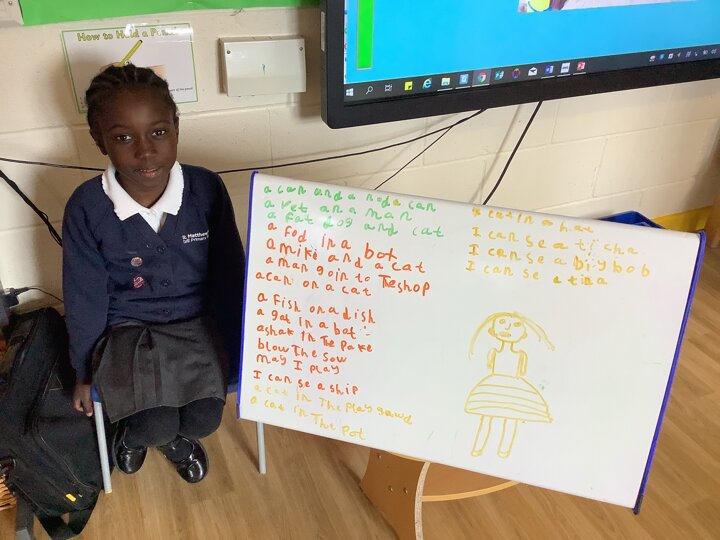 How to Hold a Pe
St. Matthew
CofE Primary
a can and a nod a can
a vet an a man
a fat dog and cat
a fod in a bot
a mike and a cat
a man goin to Theshop
acan on a cat
a fish on a dish
a gat in a bat
ashak in The pake
blow The sow
may I play
I can se a ship
a cat in The play gawd
a cat in The pot
a cat in a hat
I can se a ti cha
I can se a big bob
I can se a tina